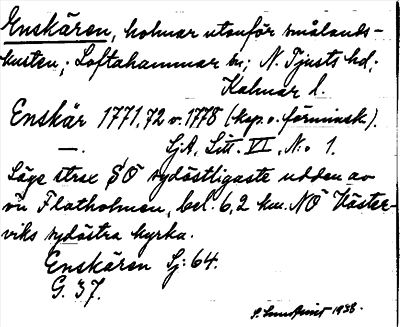 Enskären, holmar utanför smålands-
kusten; Loftahammar sn; N. Tjusts hd;
Kalmar l.
Enskär 1771, 72 o. 1778 (kop. o. förminsk.).
—. SjA, Litt. VI, N:o 1.
Läge strax SÖ sydöstligaste udden av
ön Flatholmen, bel. 6,2 km. NÖ Väster-
viks sydöstra kyrka.
Enskären Sj: 64.
G. 37.
1938.